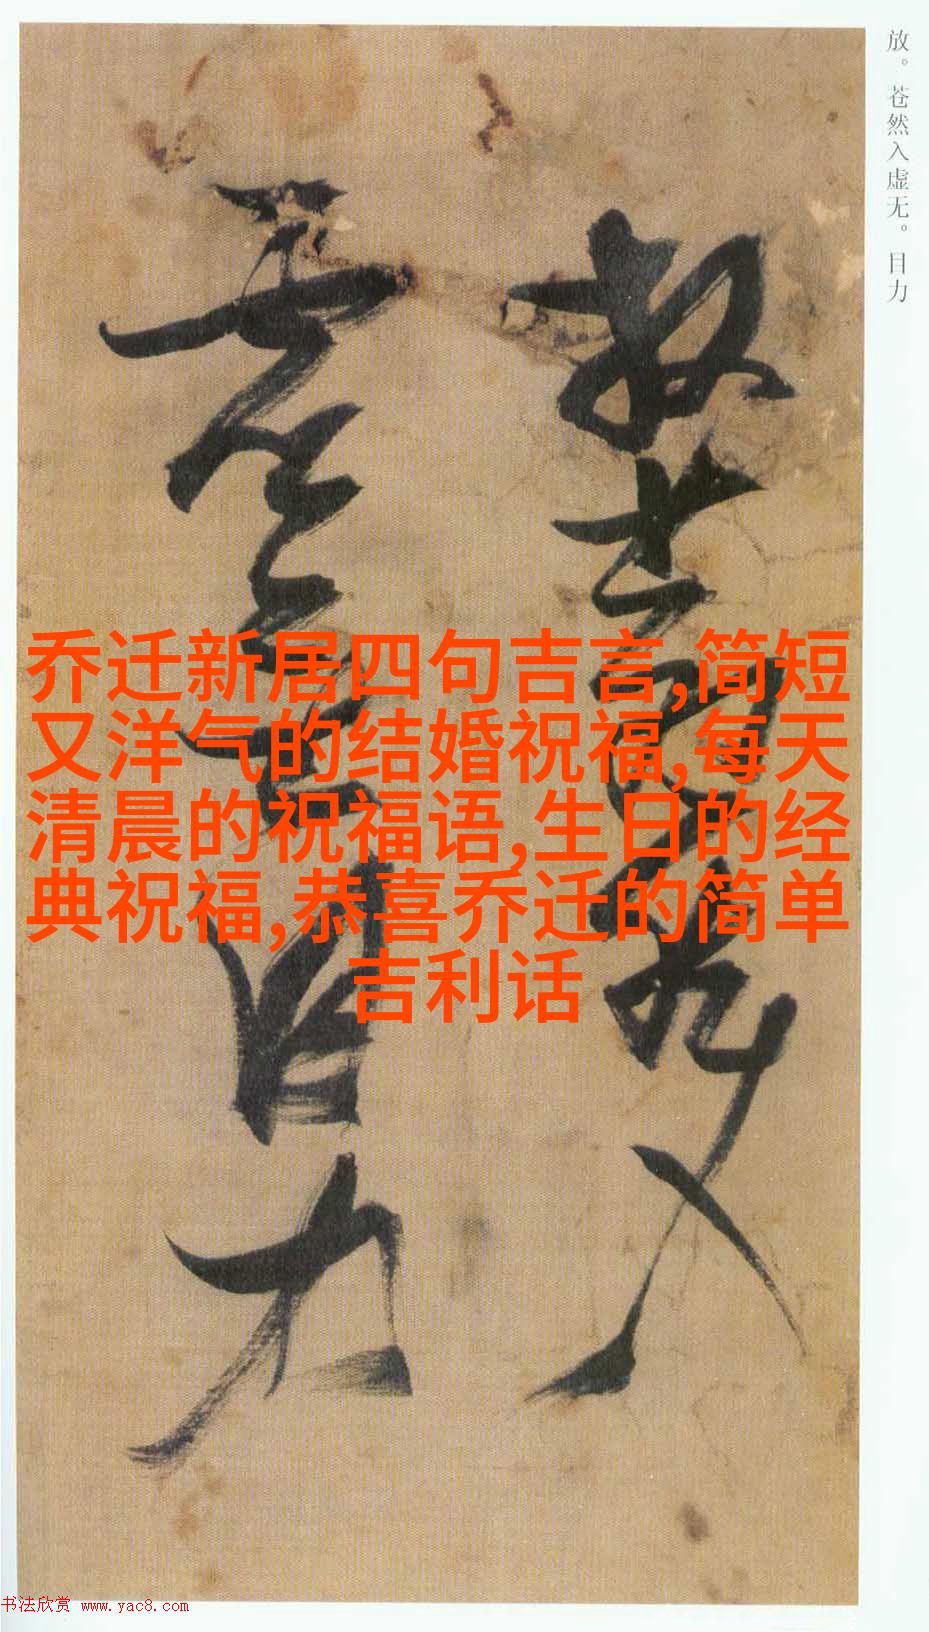 放。苍然入虚无。目力
放蒼然入
虚無目力
乔迁新居四句吉言,简短
又洋气的结婚祝福,每天
清晨的祝福语,生日的经
典祝福,恭喜乔迁的简单
吉利话
书法欣赏 www.yac8.com